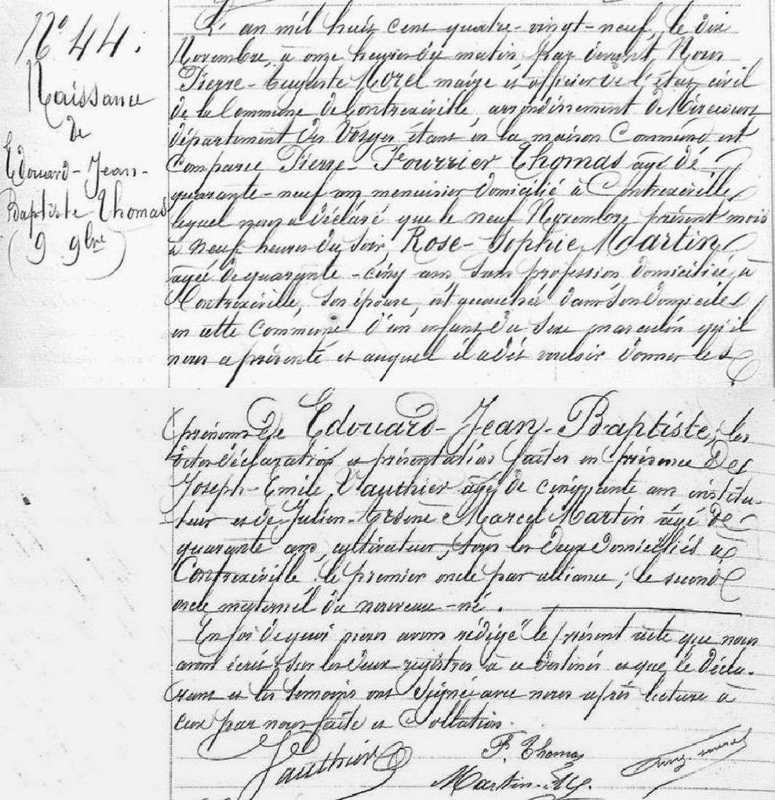 N° 44.
Naissance
de
Edouard-Jean-
Baptiste Thomas
(9 9bre)
L'an mil huit cent quatre-vingt-neuf, le dix
Novembre, à onze heures du matin par devant Nous
Pierre-Auguste Morel maire et officier de l'état civil
de la Commune de Contrexéville, arrondissement de Mirecourt
département des Vosges étant en la maison Commune est
Comparu Pierre-Fourrier Thomas âgé de
quarante-neuf ans menuisier domicilié à Contrexéville
lequel nous a déclaré que le neuf Novembre présent mois
à neuf heures du soir, Rose-Sophie Martin
agée de quarante-cinq ans sans profession domiciliée à
Contrexéville, son épouse, est accouchée dans son domicile
en cette Commune d'un enfant du sexe masculin qu'il
nous a présenté et auquel il a dit vouloir donner les
prénoms de Edouard-Jean-Baptiste, les
dites déclaration et présentation faites en présence de
Joseph-Emile Vauthier âgé de cinquante ans institu-
teur et de Julien- Marcel Martin âgé de
quarante ans, cultivateur, tous les deux domiciliés à
Contrexéville le premier oncle par alliance; le second
oncle maternel du nouveau-né.
En foi de quoi nous avons rédigé le présent acte que nous
avons écrit sur les deux registres à ce destinés et que le décla-
rant et les témoins ont signé avec nous après lecture à
eux par nous faite et Collation.
Vauthier
F. Thomas
Martin-